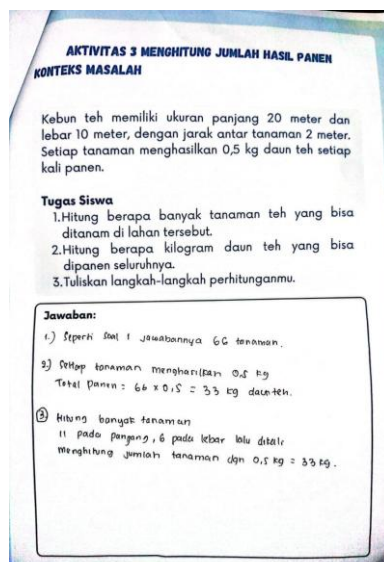 AKTIVITAS 3 MENGHITUNG JUMLAH HASIL PANEN
KONTEKS MASALAH
Kebun teh memiliki ukuran panjang 20 meter dan
lebar 10 meter, dengan jarak antar tanaman 2 meter.
Setiap tanaman menghasilkan 0,5 kg daun teh setiap
kali panen.
Tugas Siswa
1.Hitung berapa banyak tanaman teh yang bisa
ditanam di lahan tersebut.
2.Hitung berapa kilogram daun teh yang bisa
dipanen seluruhnya.
3.Tuliskan langkah-langkah perhitunganmu.
Jawaban:
1.) Seperti Soal 1 jawabannya 66 tanaman.
2) Setiap tanaman menghasilkan 0,5 kg
Total Panen : 66 x 0,5 = 33 kg daun teh.
3) Hitung banyak tanaman
11 pada panjang, 6 pada lebar lalu dikali
menghitung jumlah tanaman dgn 0,5 kg = 33 kg.